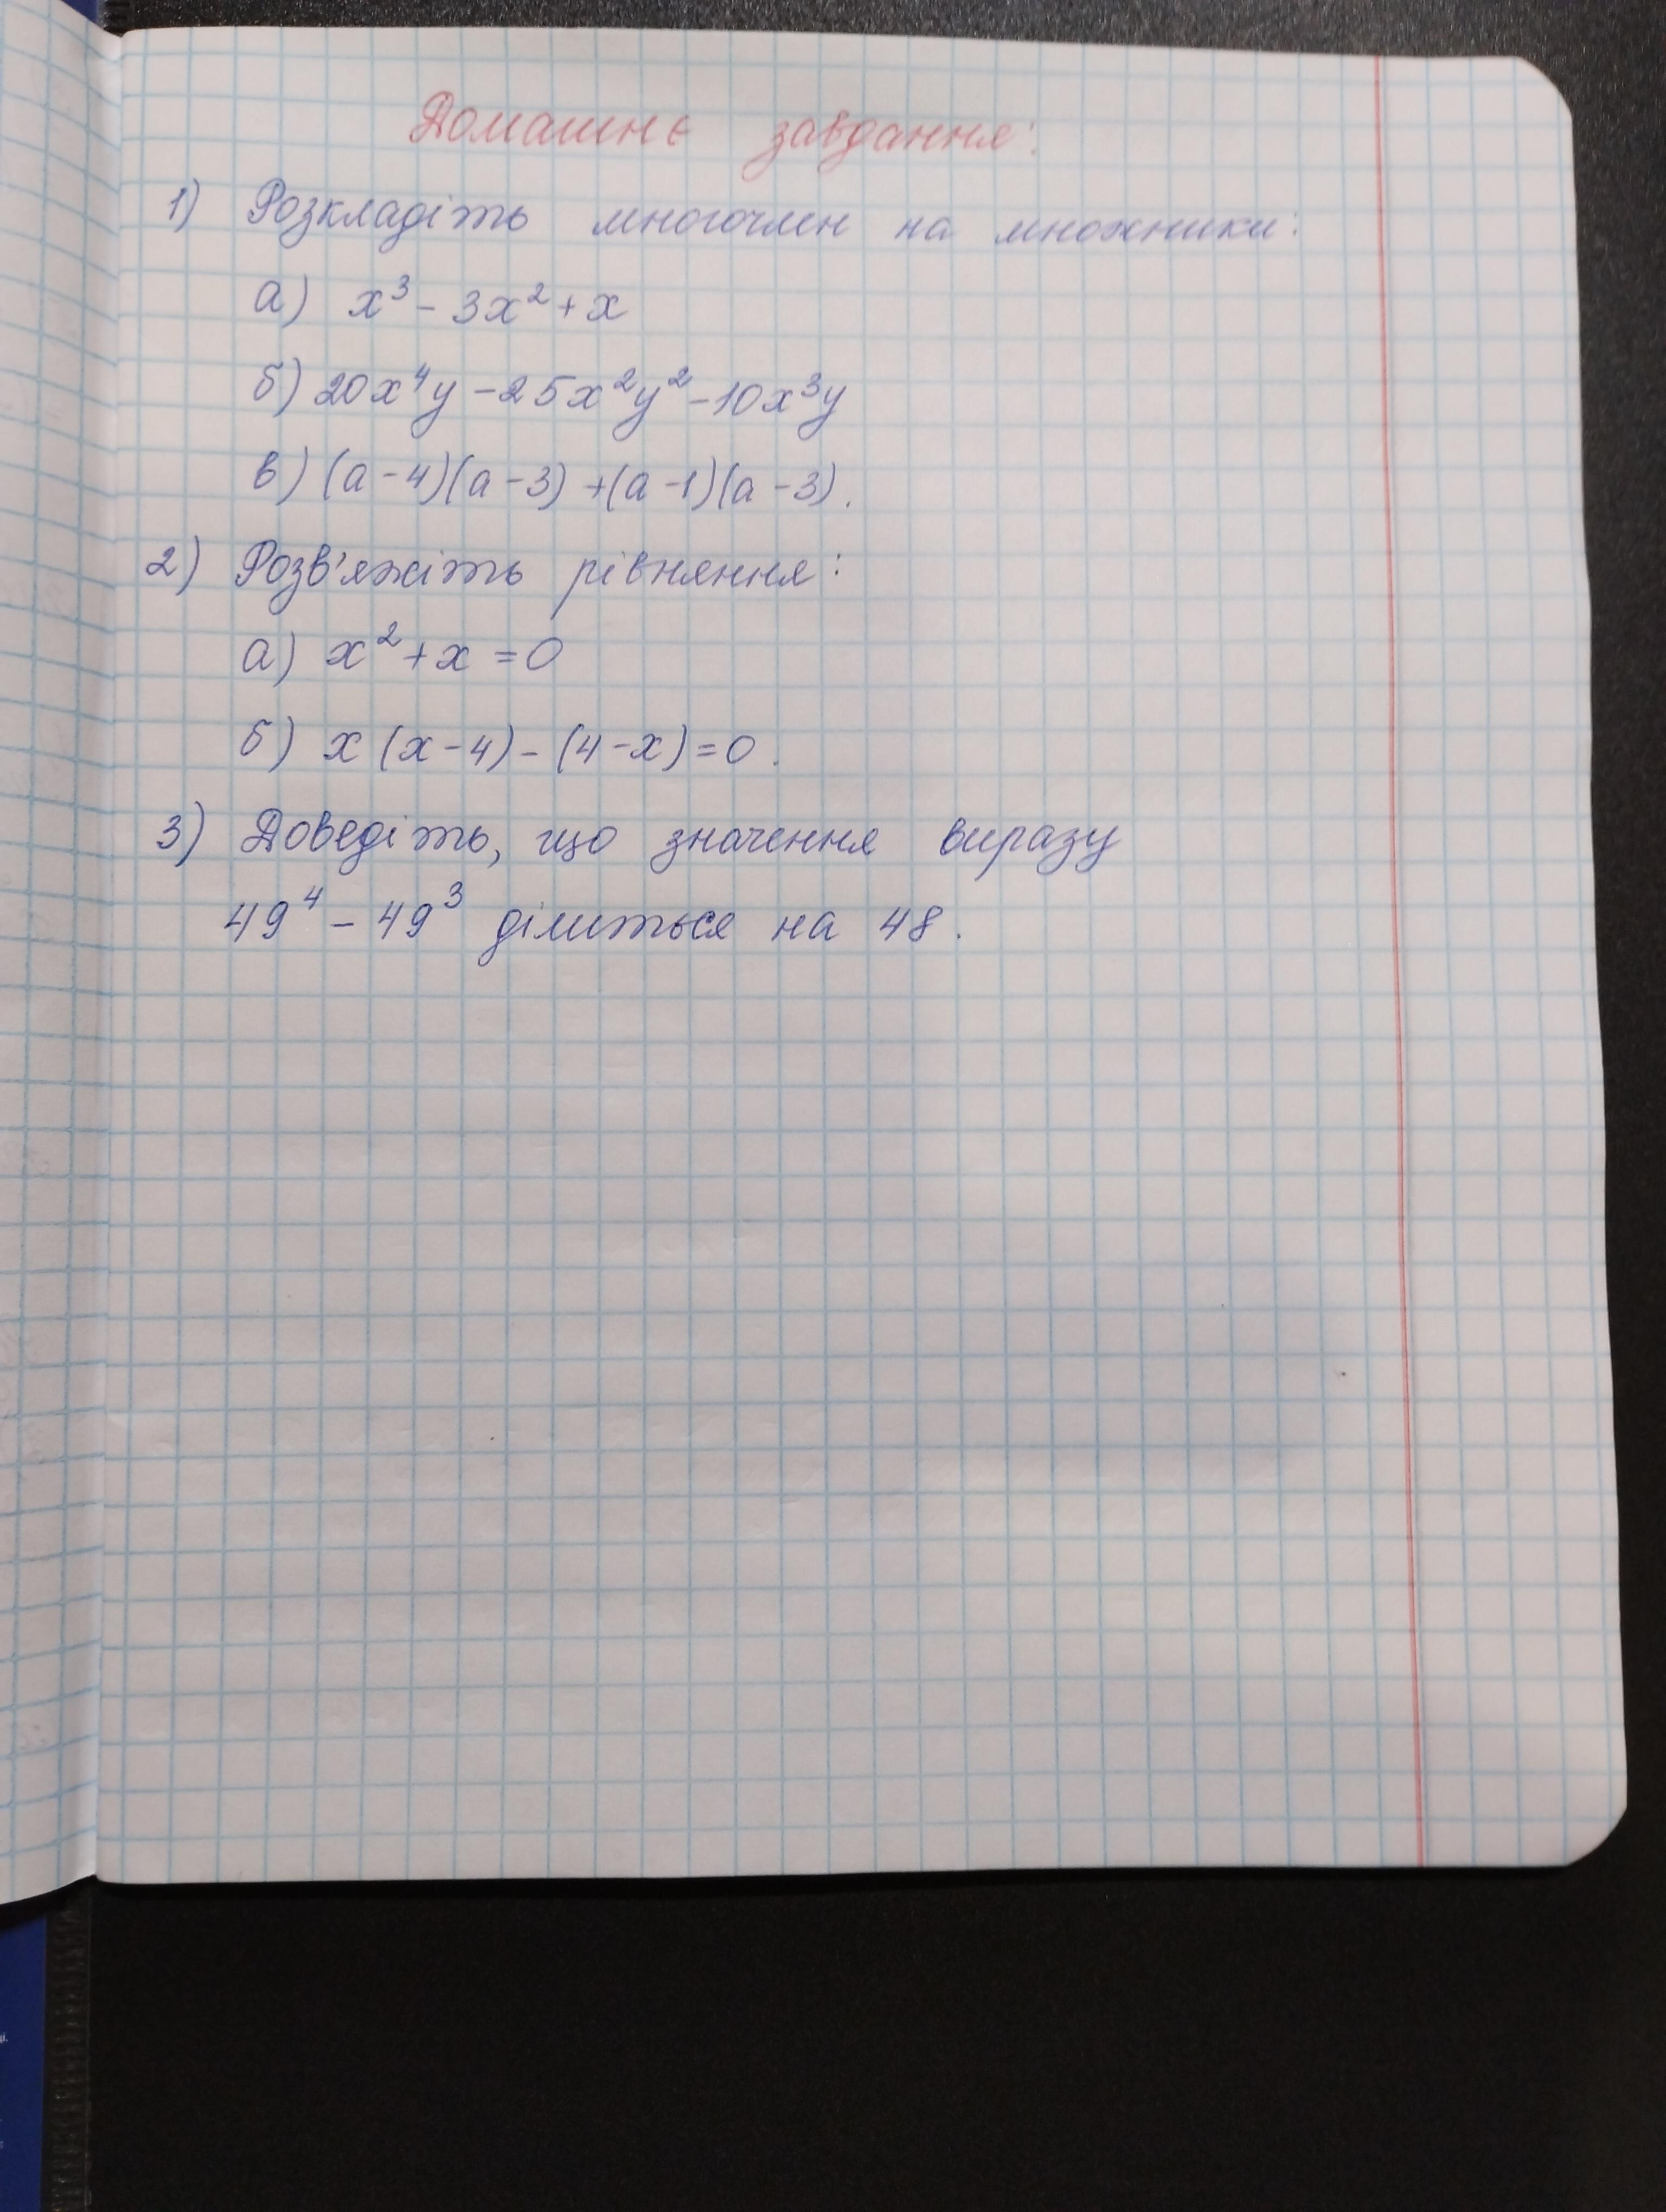 Домашнє завдання:
1) Розкладіть многочлен на множники:
а) x³ - 3x² + x
б) 20x⁴y - 25x²y² - 10x³y
в) (a - 4)(a - 3) + (a - 1)(a - 3).
2) Розв'яжіть рівняння:
а) x² + x = 0
б) x (x - 4) - (4 - x) = 0.
3) Доведіть, що значення виразу
49⁴ - 49³ ділиться на 48.